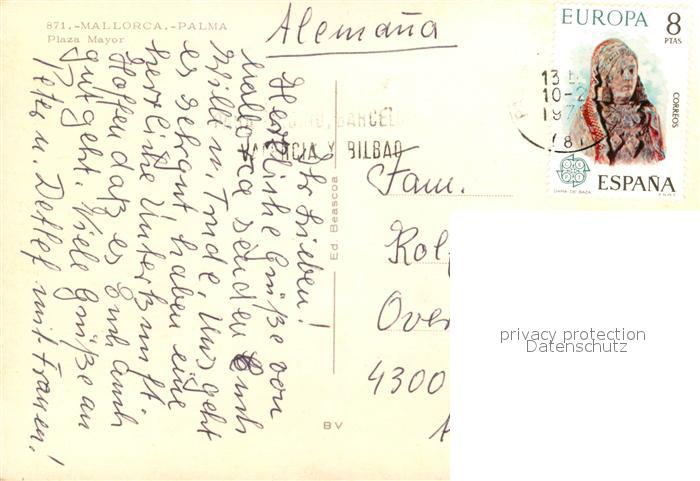 871.-MALLORCA.-PALMA
Plaza Mayor
Alemaña
EUROPA 8
PTAS
CORREOS
ESPAÑA
DAMA DE BAZA
13
10-2
197
BARCEL
VALENCIA Y BILBAO
Ed. Beascoa
BV
Ihr Lieben!
Herzliche Grüße von
Mallorca senden Euch
Willi u. Trude, Uns geht
es sehr gut, haben eine
herrliche Unterkunft.
Hoffen daß es Euch auch
gut geht. Viele Grüße an
Peter u. Detlef mit Frauen!
Fam.
Rol
Over
4300
privacy protection
Datenschutz